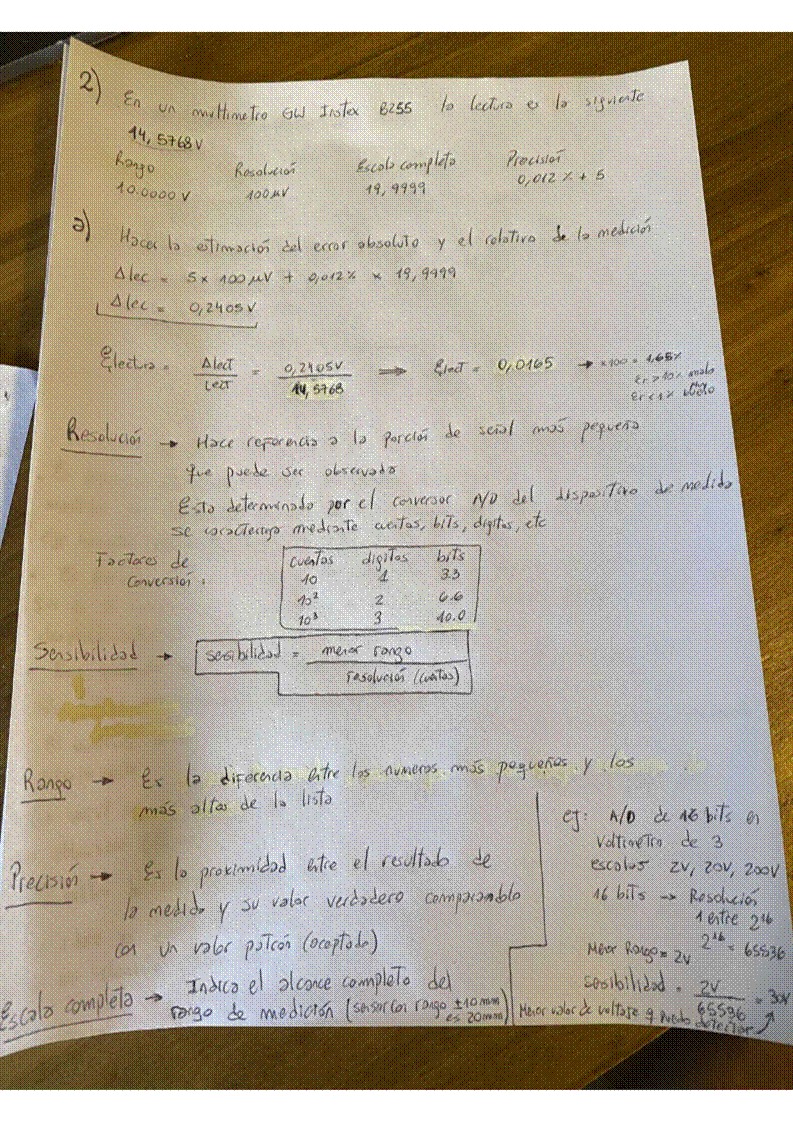 2) En un multimetro GW Instex 8255 la lectura es la siguiente
14,5768 V
Rango Resolución Escala completa Precisión
10.0000 V 100 μV 19,9999 0,012 % + 5
a) Hacer la estimación del error absoluto y el relativo de la medición
Δ lec = 5 x 100 μV + 0,012 % x 19,9999
Δ lec = 0,2405 V
Electura = Δlect / Lect = 0,2405 V / 14,5768 ⟹ Elect = 0,0165 → x100 = 1,65 %
Er > 10% malo
Er < 1%
Resolución → Hace referencia a la porción de señal más pequeña
que puede ser observada
Esta determinado por el conversor A/D del dispositivo de medida
se caracteriza mediante cuentas, bits, digitos, etc
Factores de
Conversión :
cuentas digitos bits
10 1 3.3
10² 2 6.6
10³ 3 10.0
Sensibilidad → sensibilidad = menor rango / resolución (cuentas)
Rango → Es la diferencia entre los numeros más pequeños y los
más altos de la lista
Precisión → Es la proximidad entre el resultado de
la medida y su valor verdadero comparandolo
con un valor patrón (aceptado)
Escala completa → Indica el alcance completo del
rango de medición (sensor con rango ±10 mm
es 20mm)
ej: A/D de 16 bits en
Voltimetro de 3
escalas 2V, 20V, 200V
16 bits → Resolución
1 entre 2¹⁶
Menor Rango = 2V 2¹⁶ = 65536
sensibilidad = 2V / 65536 = 30V
Menor valor de voltaje q puedo detector